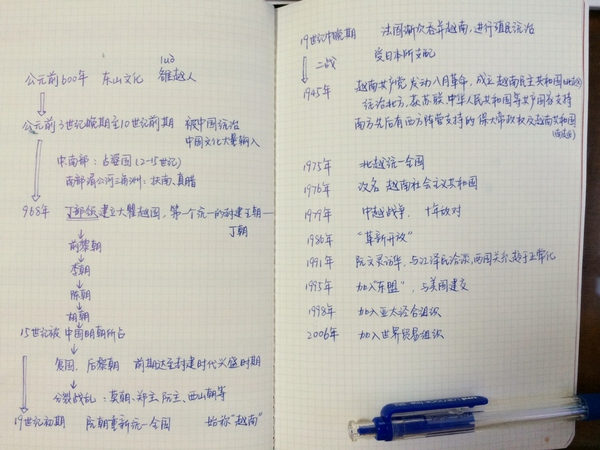 luò
公元前600年 东山文化 雒越人
公元前3世纪晚期至10世纪前期 被中国统治
中国文化大量输入
中南部：占婆国(2-15世纪)
南部湄公河三角洲：扶南、真腊
968年 丁部领建立大瞿越国，第一个统一的封建王朝—
丁朝
前黎朝
李朝
陈朝
胡朝
15世纪被中国明朝所占
复国，后黎朝 前期达至封建时代兴盛时期
分裂战乱：莫朝、郑主、阮主、西山朝等
19世纪初期 阮朝重新统一全国 始称“越南”
19世纪中晚期 法国渐次吞并越南，进行殖民统治
二战 受日本所支配
1945年 越南共产党发动八月革命，成立越南民主共和国
统治北方，获苏联、中华人民共和国等共产国家支持
南方先后有西方阵营支持的保大帝政权及越南共和国
1975年 北越统一全国
1976年 改名 越南社会主义共和国
1979年 中越战争，十年敌对
1986年 “革新开放”
1991年 阮文灵访华，与江泽民洽谈，两国关系趋于正常化
1995年 加入“东盟”，与美国建交
1998年 加入亚太经合组织
2006年 加入世界贸易组织